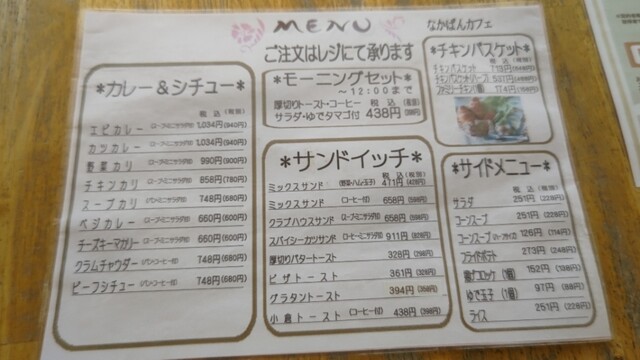 MENU
なかぱんカフェ
ご注文はレジにて承ります
*カレー&シチュー*
税込(税別)
エビカレー (スープ・ミニサラダ付) 1,034円(940円)
カツカレー (スープ・ミニサラダ付) 1,034円(940円)
野菜カリー (スープ・ミニサラダ付) 990円(900円)
チキンカリー (スープ・ミニサラダ付) 858円(780円)
スープカリー (パン・ミニサラダ付) 748円(680円)
ベジカレー (スープ・ミニサラダ付) 660円(600円)
チーズキーマカリー (スープ・ミニサラダ付) 660円(600円)
クラムチャウダー (パン・コーヒー付) 748円(680円)
ビーフシチュー (パン・コーヒー付) 748円(680円)
*モーニングセット*
~12:00まで
厚切りトースト・コーヒー 税込 (税別)
サラダ・ゆでタマゴ付 438円
*サンドイッチ*
税込(税別)
ミックスサンド (野菜・ハム・玉子) 471円(428円)
ミックスサンド (コーヒー付) 658円
クラブハウスサンド (スープ・ミニサラダ付) 658円
スパイシーカツサンド (コーヒー・ミニサラダ付) 911円(828円)
厚切りバタートースト 328円(298円)
ピザトースト 361円(328円)
グラタントースト 394円(358円)
小倉トースト (コーヒー付) 438円(398円)
*チキンバスケット*
税込(税別)
チキンバスケット
チキンバスケット(ハーフ)
ファミリーチキン(1個) 174円(158円)
*サイドメニュー*
税込(税別)
サラダ 251円(228円)
コーンスープ 251円(228円)
コーンスープ(ハーフサイズ) 126円(114円)
フライドポテト 273円(248円)
152円(138円)
ゆで玉子(1個) 97円(88円)
ライス 251円(228円)